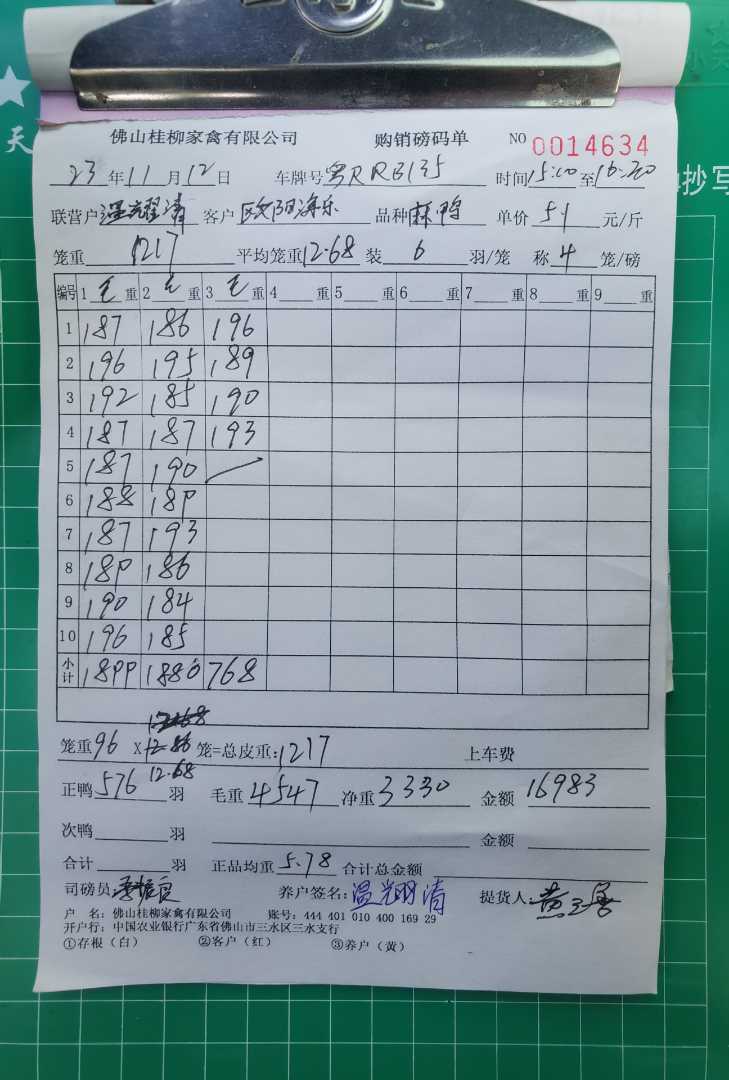 佛山桂柳家禽有限公司 购销磅码单 NO 0014634
23年11月12日 车牌号粤RRB135 时间15:00至16:20
联营户温耀清 客户欧阳海乐 品种麻鸭 单价51元/斤
笼重1217 平均笼重12.68 装6羽/笼 称4笼/磅
编号 1毛重 2毛重 3毛重 4重 5重 6重 7重 8重 9重
1 187 186 196
2 196 195 189
3 192 185 190
4 187 187 193
5 187 190
6 188 18P
7 187 193
8 18P 186
9 190 184
10 196 185
小计 18PP 1880 768
12.68
笼重96 X 12.86 笼=总皮重:1217 上车费
12.68
正鸭576羽 毛重4547 净重3330 金额16983
次鸭 羽 金额
合计 羽 正品均重5.78 合计总金额
司磅员: 养户签名:温耀清 提货人:
户 名:佛山桂柳家禽有限公司 账号:444 401 010 400 169 29
开户行:中国农业银行广东省佛山市三水区三水支行
①存根(白) ②客户(红) ③养户(黄)
天
小天
抄写